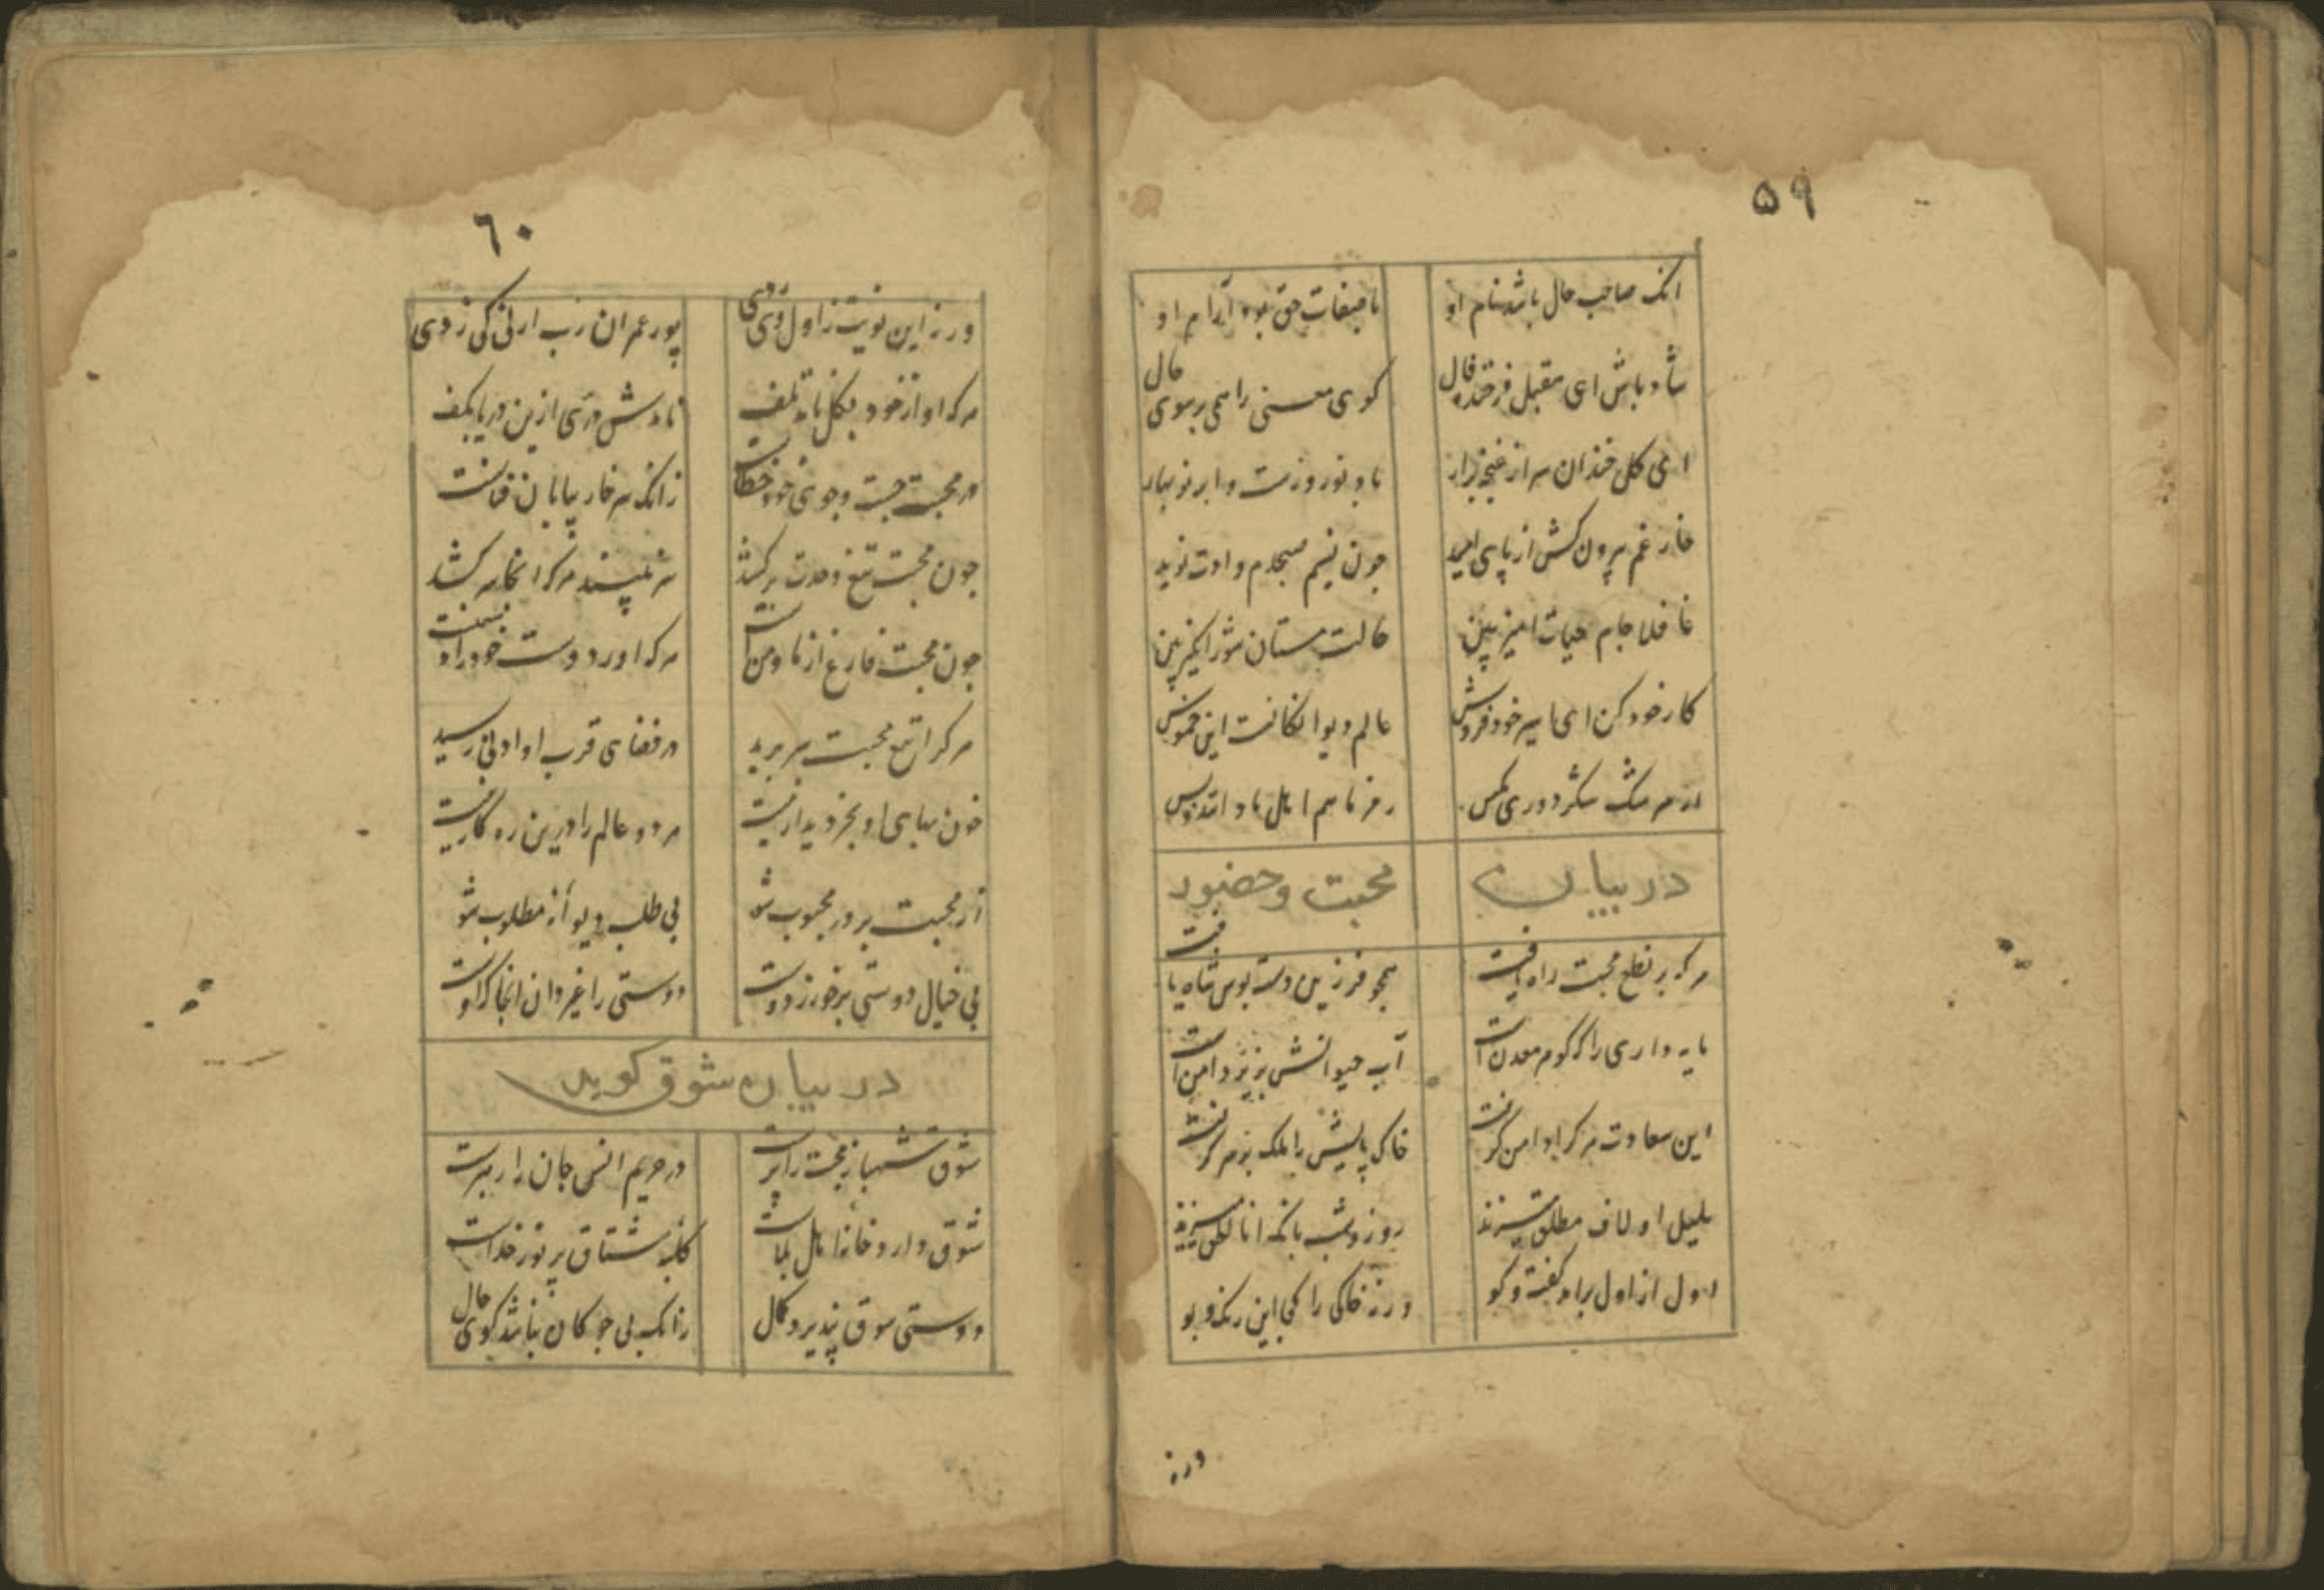 ۵۹
انک صاحب حال باشد نام او با صفات حق بود آرام او
شاد باش ای مقبل فرخنده فال کوی معنی را همی بر سوی حال
ای کل خندان سر از غنچه برار باد نوروزست و ابر نوبهار
خار غم بیرون کش از پای امید چون نسیم صبحدم دادت نوید
غافلا جام حیات امیز بین حالت مستان شور انکیز بین
کار خود کن ای اسیر خود فروش عالم دیوانکانست این خموش
رمز ما هم اهل ما داند و بس
در بیان محبت و حضور
هر که بر نطع محبت راه یافت همچو فرزین دست بوس شاه یافت
مایه داری را که کوهر معدن است آب حیوانش بزیر دامن است
این سعادت هر کرا دامن کرفت خاک پایش را ملک بر سر کرفت
بلبل او لاف مطلق میزند روز و شب بانک انا الحق میزند
اول از اول براد کفت و کو ورنه خاکی را کجا این رنک و بو
ورنه
۶۰
ورنه این نوبت ز اول وی زدی پور عمران رب ارنی کی زدی
هر که او از خود بکل ماند تلف نایدش دری ازین دریا بکف
در محبت جست و جوی خود خطاست زانک سر خار بیابان فناست
چون محبت تیغ وحدت برکشد سر نبیند هر که انجا سر کشد
چون محبت فارغ از ما و من است هر که اورد دوست خود را دشمنست
هر کرا تیغ محبت سر برید در فضای قرب او ادنی رسید
خون بهای او بجز دیدار نیست هر دو عالم را درین ره کار نیست
از محبت بر در محبوب شو بی طلب دیوانه مطلوب شو
بی خیال دوستی برخور ز دوست دوستی را غیر دان انجا که اوست
در بیان شوق کوید
شوق شهباز محبت را پرست در حریم انس جان را رهبرست
شوق دارو خانه اهل بلاست کلبه مشتاق پر نور خداست
دوستی از شوق پذیرد کمال زانک بی چوکان نباشد کوی حال